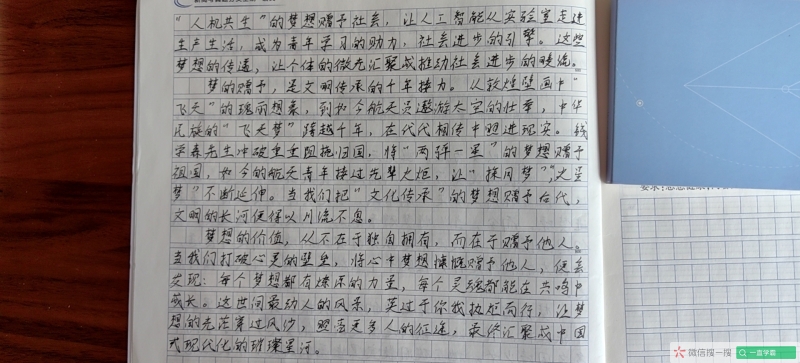 "人机共生"的梦想赠予社会，让人工智能从实验室走进
生产生活，成为青年学习的助力，社会进步的引擎。这些
梦想的传递，让个体的微光汇聚成推动社会进步的暖流。
梦的赠予，是文明传承的千年接力。从敦煌壁画中"
飞天"的瑰丽想象，到如今航天员遨游太空的壮举，中华
民族的"飞天梦"跨越千年，在代代相传中照进现实。钱
学森先生冲破重重阻挠归国，将"两弹一星"的梦想赠予
祖国，如今的航天青年接过先辈火炬，让"探月梦""
梦"不断延伸。当我们把"文化传承"的梦想赠予后代，
文明的长河便得以川流不息。
梦想的价值，从不在于独自拥有，而在于赠予他人。
当我们打破心灵的壁垒，将心中梦想慷慨赠予他人，便会
发现：每个梦想都有燎原的力量，每个灵魂都能在共鸣中
成长。这世间最动人的风景，莫过于你我执炬而行，让梦
想的光芒穿过风沙，照亮更多人的征途，最终汇聚成中国
式现代化的璀璨星河。
微信搜一搜 一言学霸